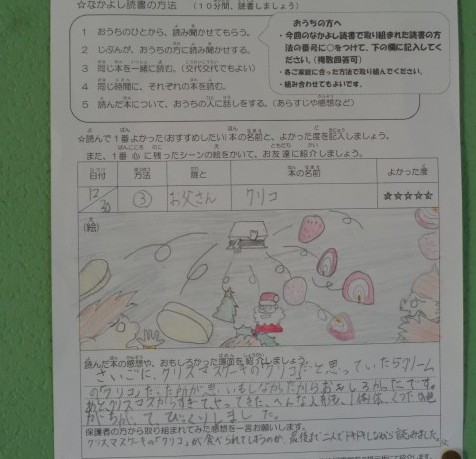 ☆なかよし読書の方法 （10分間、読書しましょう）
1 おうちのひとから、読み聞かせてもらう。
2 じぶんが、おうちの方に読み聞かせする。
3 同じ本を一緒に読む。（交代交代でもよい）
4 同じ時間に、それぞれの本を読む。
5 読んだ本について、おうちの人に話しをする。（あらすじや感想など）
おうちの方へ
・今回のなかよし読書で取り組まれた読書の方
法の番号に○をつけて、下の欄に記入してく
ださい。（複数回答可）
・各ご家庭に合った方法で取り組んでください。
・組み合わせてもよいです。
☆読んで1番よかった（おすすめしたい）本の名前と、よかった度を記入しましょう。
また、1番心に残ったシーンの絵をかいて、お友達に紹介しましょう。
日付 方法 誰と 本の名前 よかった度
12/30 ③ お父さん クリコ ☆☆☆☆☆
（絵）
読んだ本の感想や、おもしろかった場面を紹介しましょう。
さいごに、クリスマスケーキの「クリコ」だと思っていたらクリーム
の「クリコ」だったのが思いもしなかったからおもしろかったです。
あとクリスマスがすぎてやってきた、へんな人
て びっくりしました。
保護者の方から取り組まれてみた感想を一言お願いします。
クリスマスケーキの「クリコ」が食べられてしまうのか、最後まで二人でドキドキしながら読みました。